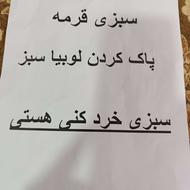 سبزی قرمه
پاک کردن لوبیا سبز
سبزی خرد کنی هستی